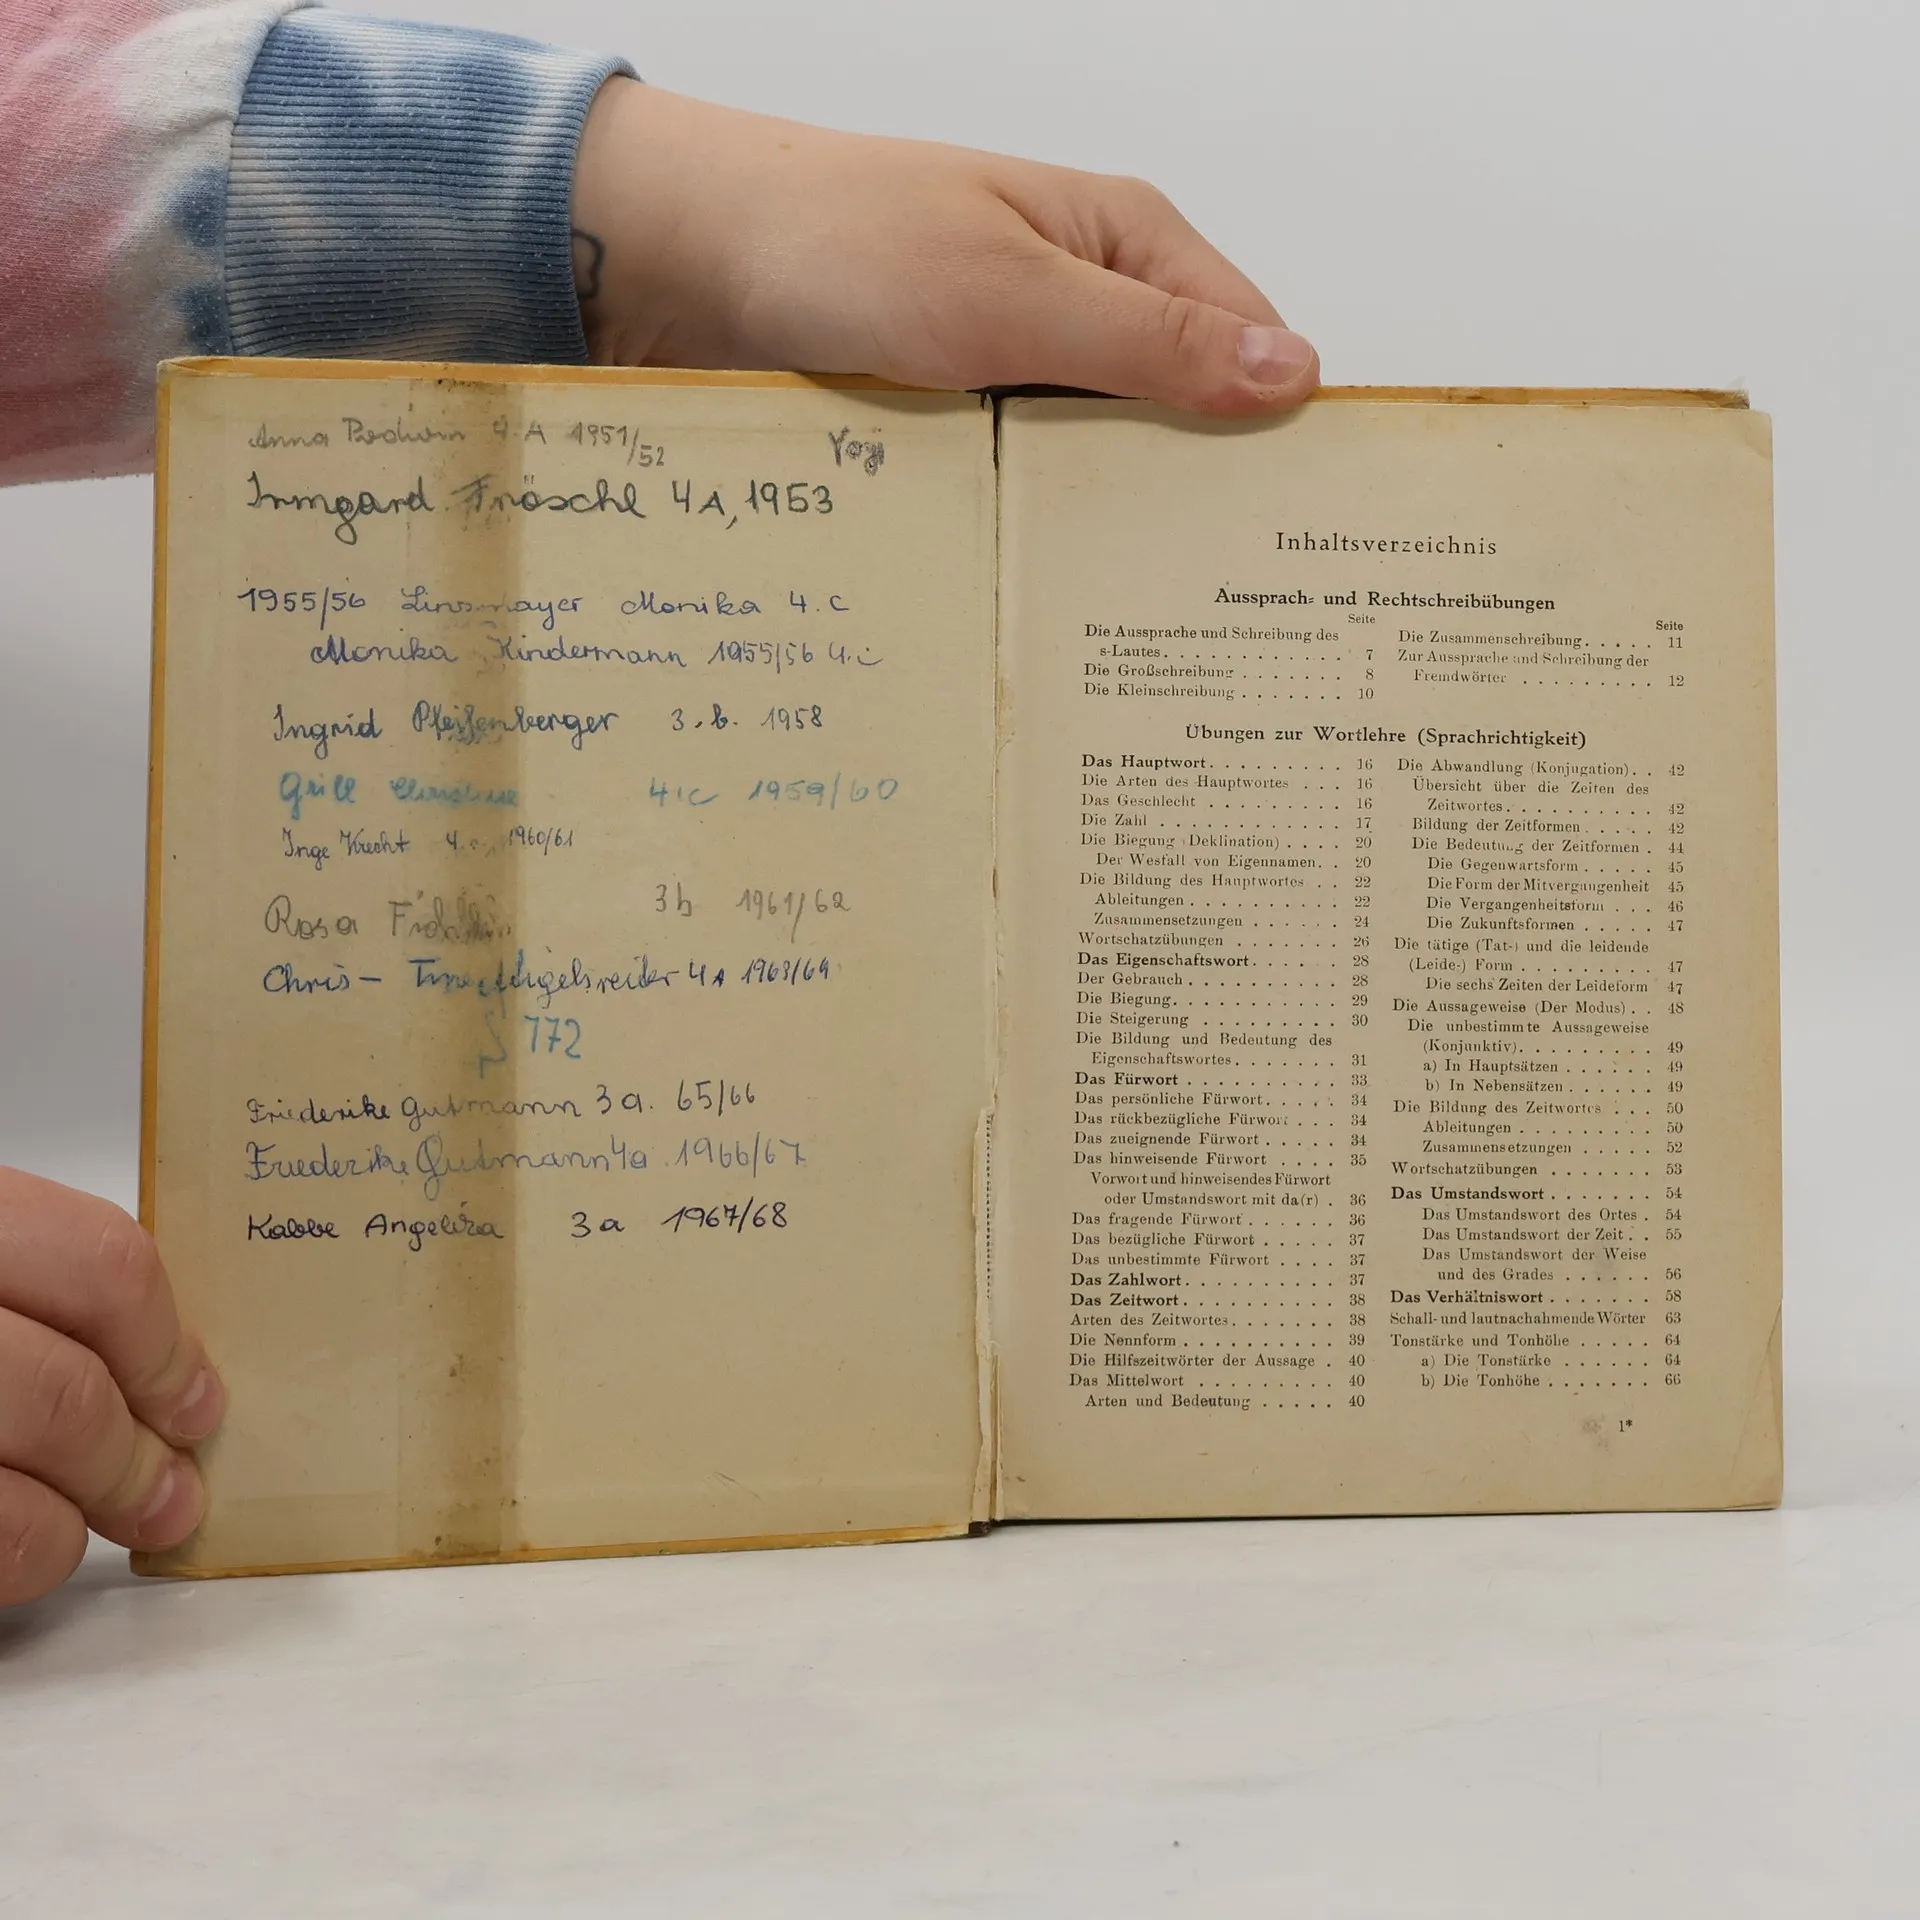 Anna 4. A 1951/52
Yogi
Irmgard Fröschl 4A, 1953
1955/56 Linsmayer Monika 4. C
Monika Kindermann 1955/56 4. c
Ingrid Pfeifenberger 3. b. 1958
Grill Christine 4. c 1959/60
Inge Krecht 4. 1960/61
Rosa 3b 1961/62
Chris- 4A 1963/64
772
Friederike Gutmann 3a. 65/66
Friederike Gutmann 4a 1966/67
Kabbe Angelika 3a 1967/68
Inhaltsverzeichnis
Aussprach- und Rechtschreibübungen
Seite
Die Aussprache und Schreibung des
s-Lautes. . . . . . . . . . . . . 7
Die Großschreibung . . . . . . . 8
Die Kleinschreibung . . . . . . . 10
Seite
Die Zusammenschreibung. . . . . 11
Zur Aussprache und Schreibung der
Fremdwörter . . . . . . . . . 12
Übungen zur Wortlehre (Sprachrichtigkeit)
Das Hauptwort. . . . . . . . . 16
Die Arten des Hauptwortes . . . 16
Das Geschlecht . . . . . . . . . 16
Die Zahl . . . . . . . . . . . . 17
Die Biegung (Deklination) . . . . 20
Der Westfall von Eigennamen. . 20
Die Bildung des Hauptwortes . . 22
Ableitungen . . . . . . . . . . 22
Zusammensetzungen . . . . . . 24
Wortschatzübungen . . . . . . . 26
Das Eigenschaftswort. . . . . . 28
Der Gebrauch . . . . . . . . . . 28
Die Biegung. . . . . . . . . . . 29
Die Steigerung . . . . . . . . . 30
Die Bildung und Bedeutung des
Eigenschaftswortes. . . . . . . 31
Das Fürwort . . . . . . . . . . 33
Das persönliche Fürwort. . . . . 34
Das rückbezügliche Fürwort . . . 34
Das zueignende Fürwort . . . . . 34
Das hinweisende Fürwort . . . . 35
Vorwort und hinweisendes Fürwort
oder Umstandswort mit da(r) . 36
Das fragende Fürwort . . . . . . 36
Das bezügliche Fürwort . . . . . 37
Das unbestimmte Fürwort . . . . 37
Das Zahlwort. . . . . . . . . . 37
Das Zeitwort. . . . . . . . . . 38
Arten des Zeitwortes. . . . . . . 38
Die Nennform . . . . . . . . . . 39
Die Hilfszeitwörter der Aussage . 40
Das Mittelwort . . . . . . . . . 40
Arten und Bedeutung . . . . . 40
Die Abwandlung (Konjugation). . 42
Übersicht über die Zeiten des
Zeitwortes. . . . . . . . . . . 42
Bildung der Zeitformen . . . . . 42
Die Bedeutung der Zeitformen . 44
Die Gegenwartsform . . . . . 45
Die Form der Mitvergangenheit 45
Die Vergangenheitsform . . . 46
Die Zukunftsformen . . . . . 47
Die tätige (Tat-) und die leidende
(Leide-) Form . . . . . . . . . 47
Die sechs Zeiten der Leideform 47
Die Aussageweise (Der Modus) . . 48
Die unbestimmte Aussageweise
(Konjunktiv). . . . . . . . . 49
a) In Hauptsätzen . . . . . . 49
b) In Nebensätzen . . . . . . 49
Die Bildung des Zeitwortes . . . 50
Ableitungen . . . . . . . . . 50
Zusammensetzungen . . . . . 52
Wortschatzübungen . . . . . . . 53
Das Umstandswort . . . . . . . 54
Das Umstandswort des Ortes . 54
Das Umstandswort der Zeit . . 55
Das Umstandswort der Weise
und des Grades . . . . . . 56
Das Verhältniswort . . . . . . . 58
Schall- und lautnachahmende Wörter 63
Tonstärke und Tonhöhe . . . . . 64
a) Die Tonstärke . . . . . . 64
b) Die Tonhöhe . . . . . . . 66
1*